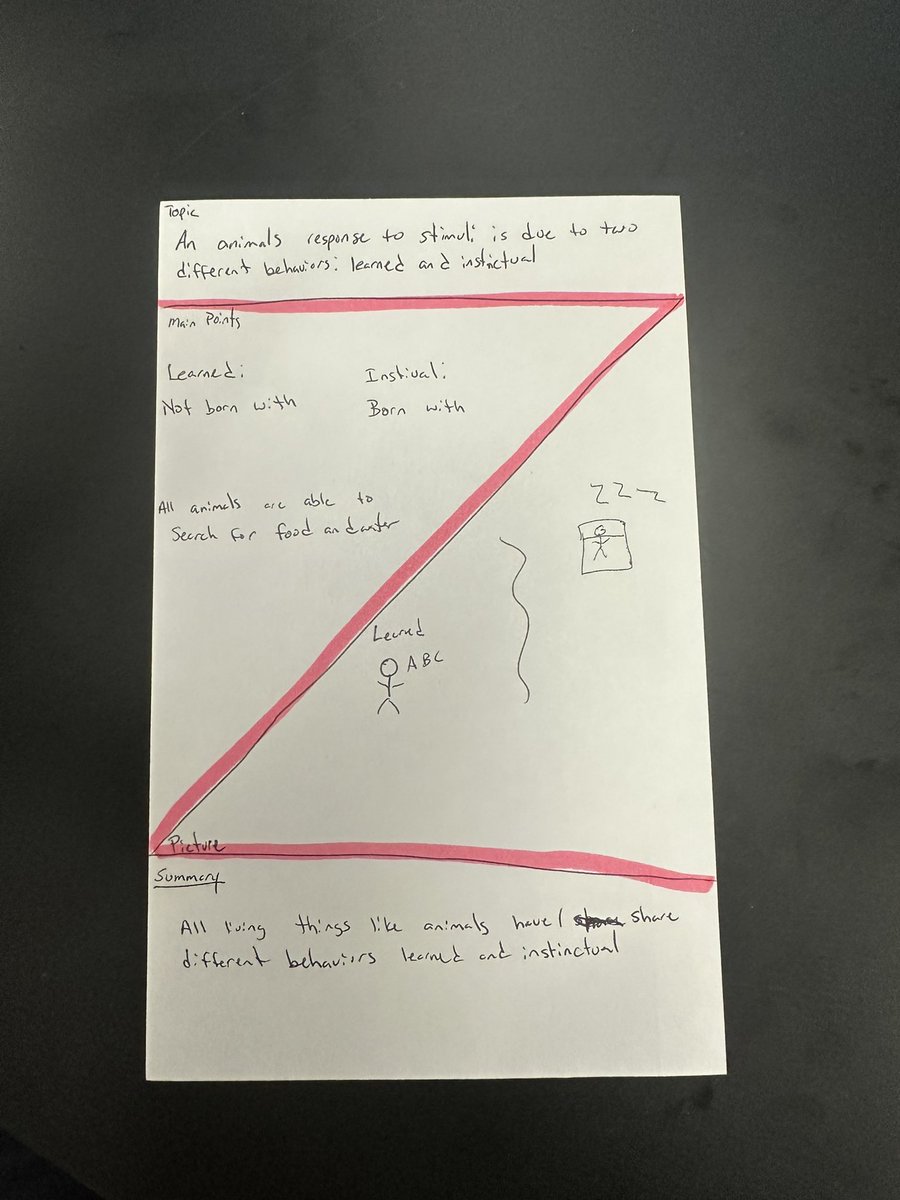 Topic
An animals response to stimuli is due to two
different behaviors: learned and instinctual
Main Points
Learned: Instival:
Not born with Born with
All animals are able to
Search for food and water
ZZZ
Learned
ABC
Picture
Summary
All living things like animals have/ share
different behaviors learned and instinctual